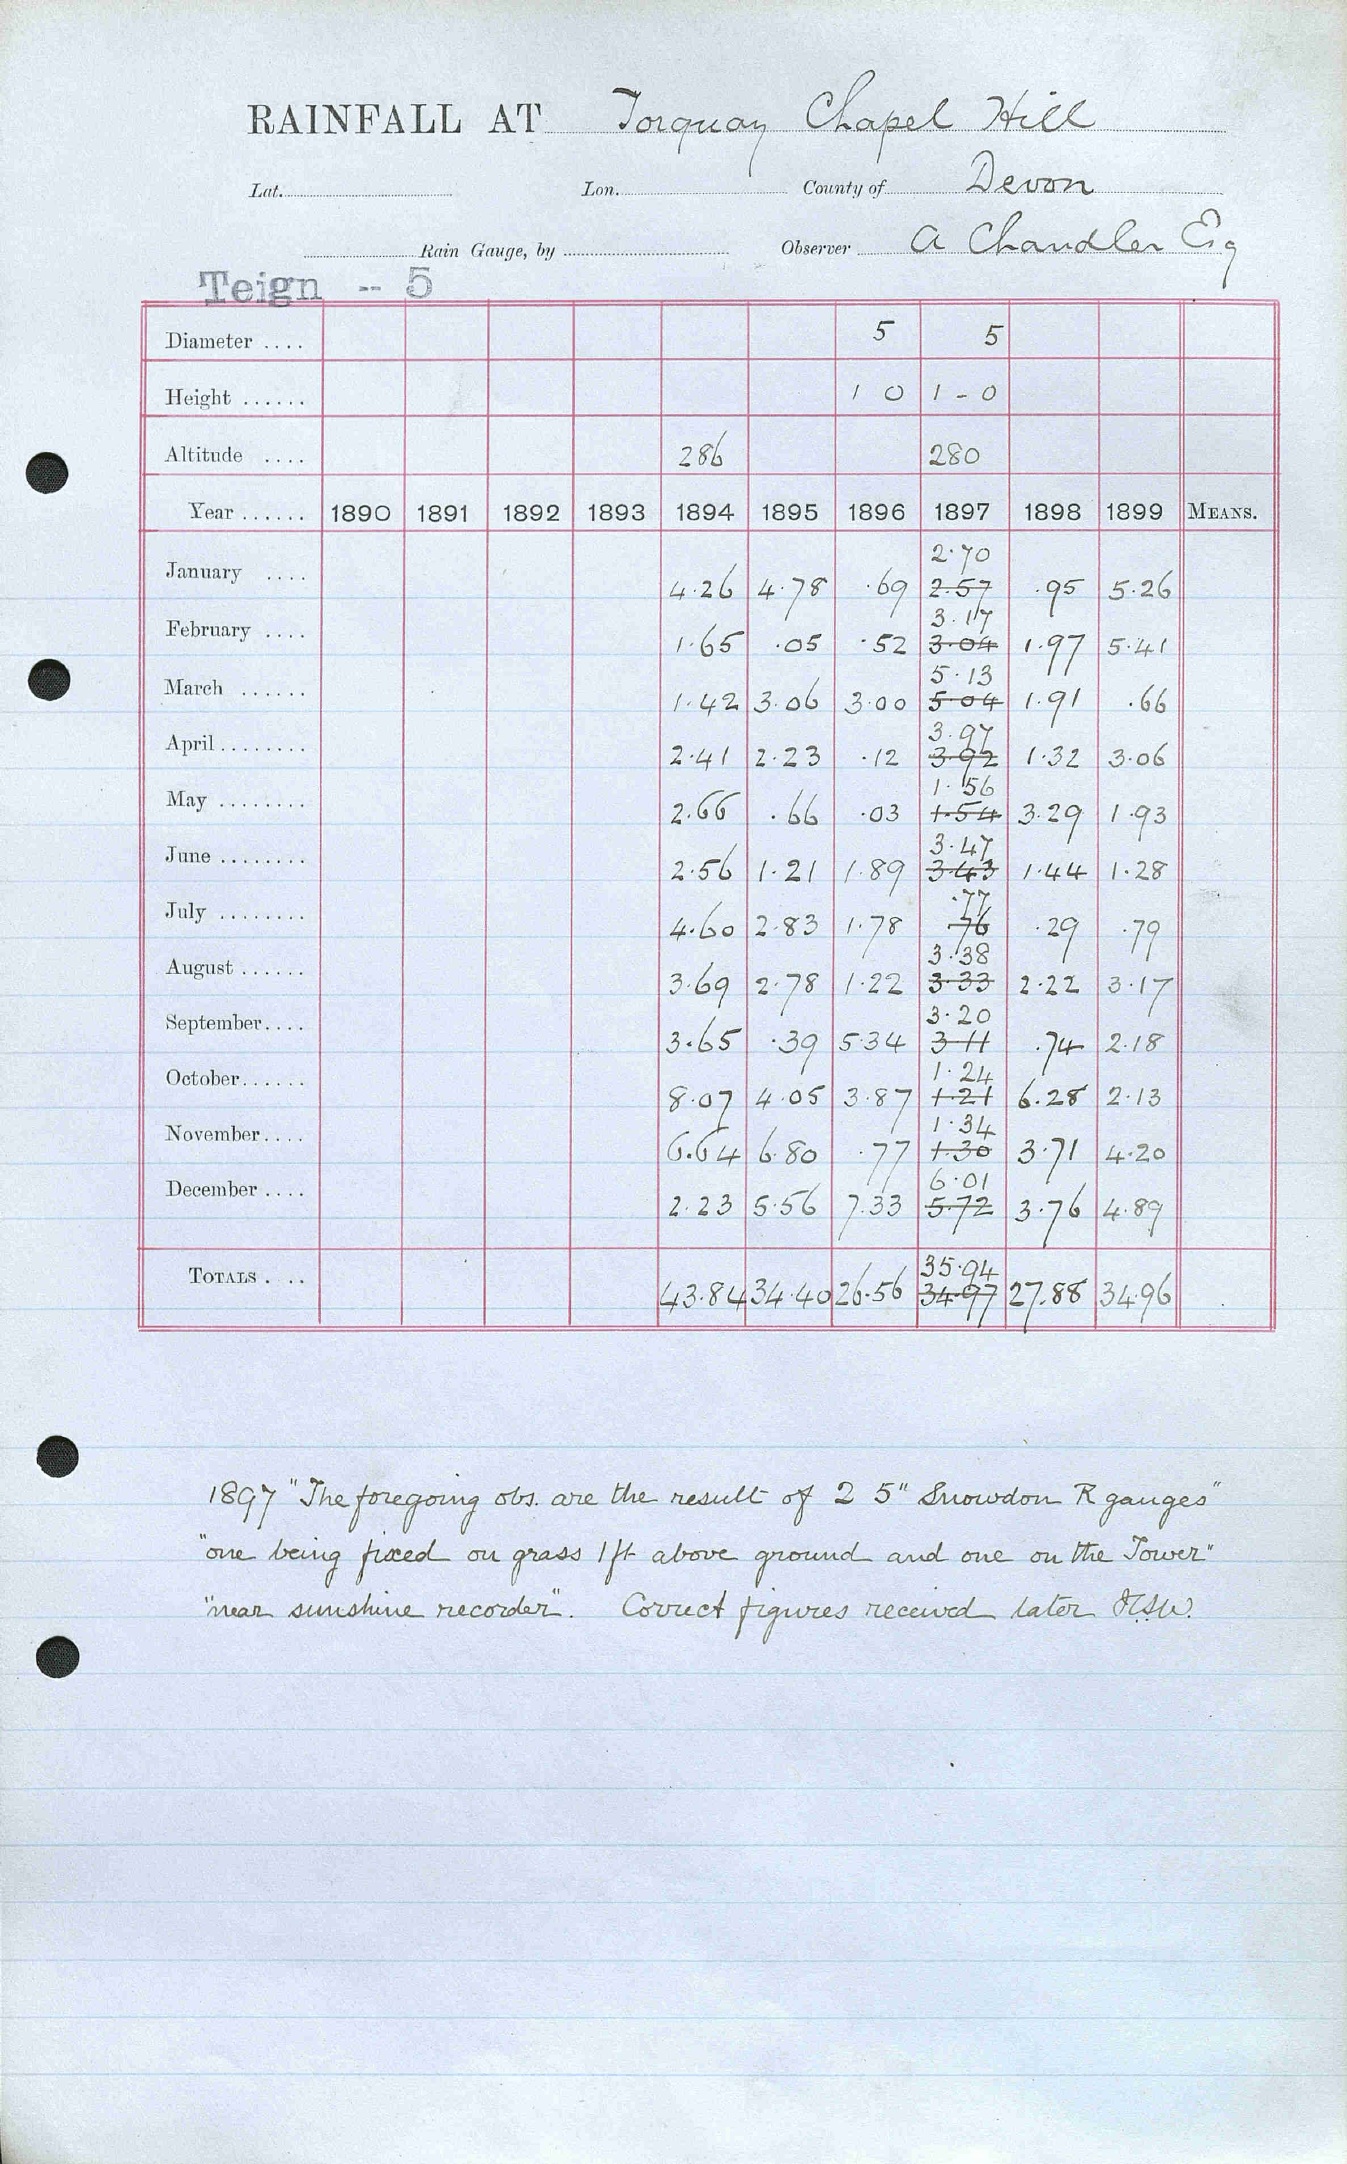 RAINFALL AT Torquay Chapel Hill
Lat. Lon. County of Devon
Rain Gauge, by Observer A Chandler Esq
Teign -- 5
Diameter .... 5 5
Height ...... 1 0 1-0
Altitude .... 286 280
Year ...... 1890 1891 1892 1893 1894 1895 1896 1897 1898 1899 MEANS.
2.70
January .... 4.26 4.78 .69 2.57 .95 5.26
3.17
February .... 1.65 .05 .52 3.04 1.97 5.41
5.13
March ...... 1.42 3.06 3.00 5.04 1.91 .66
3.97
April ........ 2.41 2.23 .12 3.92 1.32 3.06
1.56
May ........ 2.66 .66 .03 1.54 3.29 1.93
3.47
June ........ 2.56 1.21 1.89 3.43 1.44 1.28
.77
July ........ 4.60 2.83 1.78 76 .29 .79
3.38
August ...... 3.69 2.78 1.22 3.33 2.22 3.17
3.20
September.... 3.65 .39 5.34 3 11 .74 2.18
1.24
October...... 8.07 4.05 3.87 1.21 6.28 2.13
1.34
November.... 6.64 6.80 .77 1.30 3.71 4.20
6.01
December .... 2.23 5.56 7.33 5.72 3.76 4.89
35.94
TOTALS . .. 43.84 34.40 26.56 34.97 27.88 34.96
1897 "The foregoing obs. are the result of 2 5" Snowdon R gauges"
"one being fixed on grass 1ft above ground and one on the Tower"
"near sunshine recorder". Correct figures received later